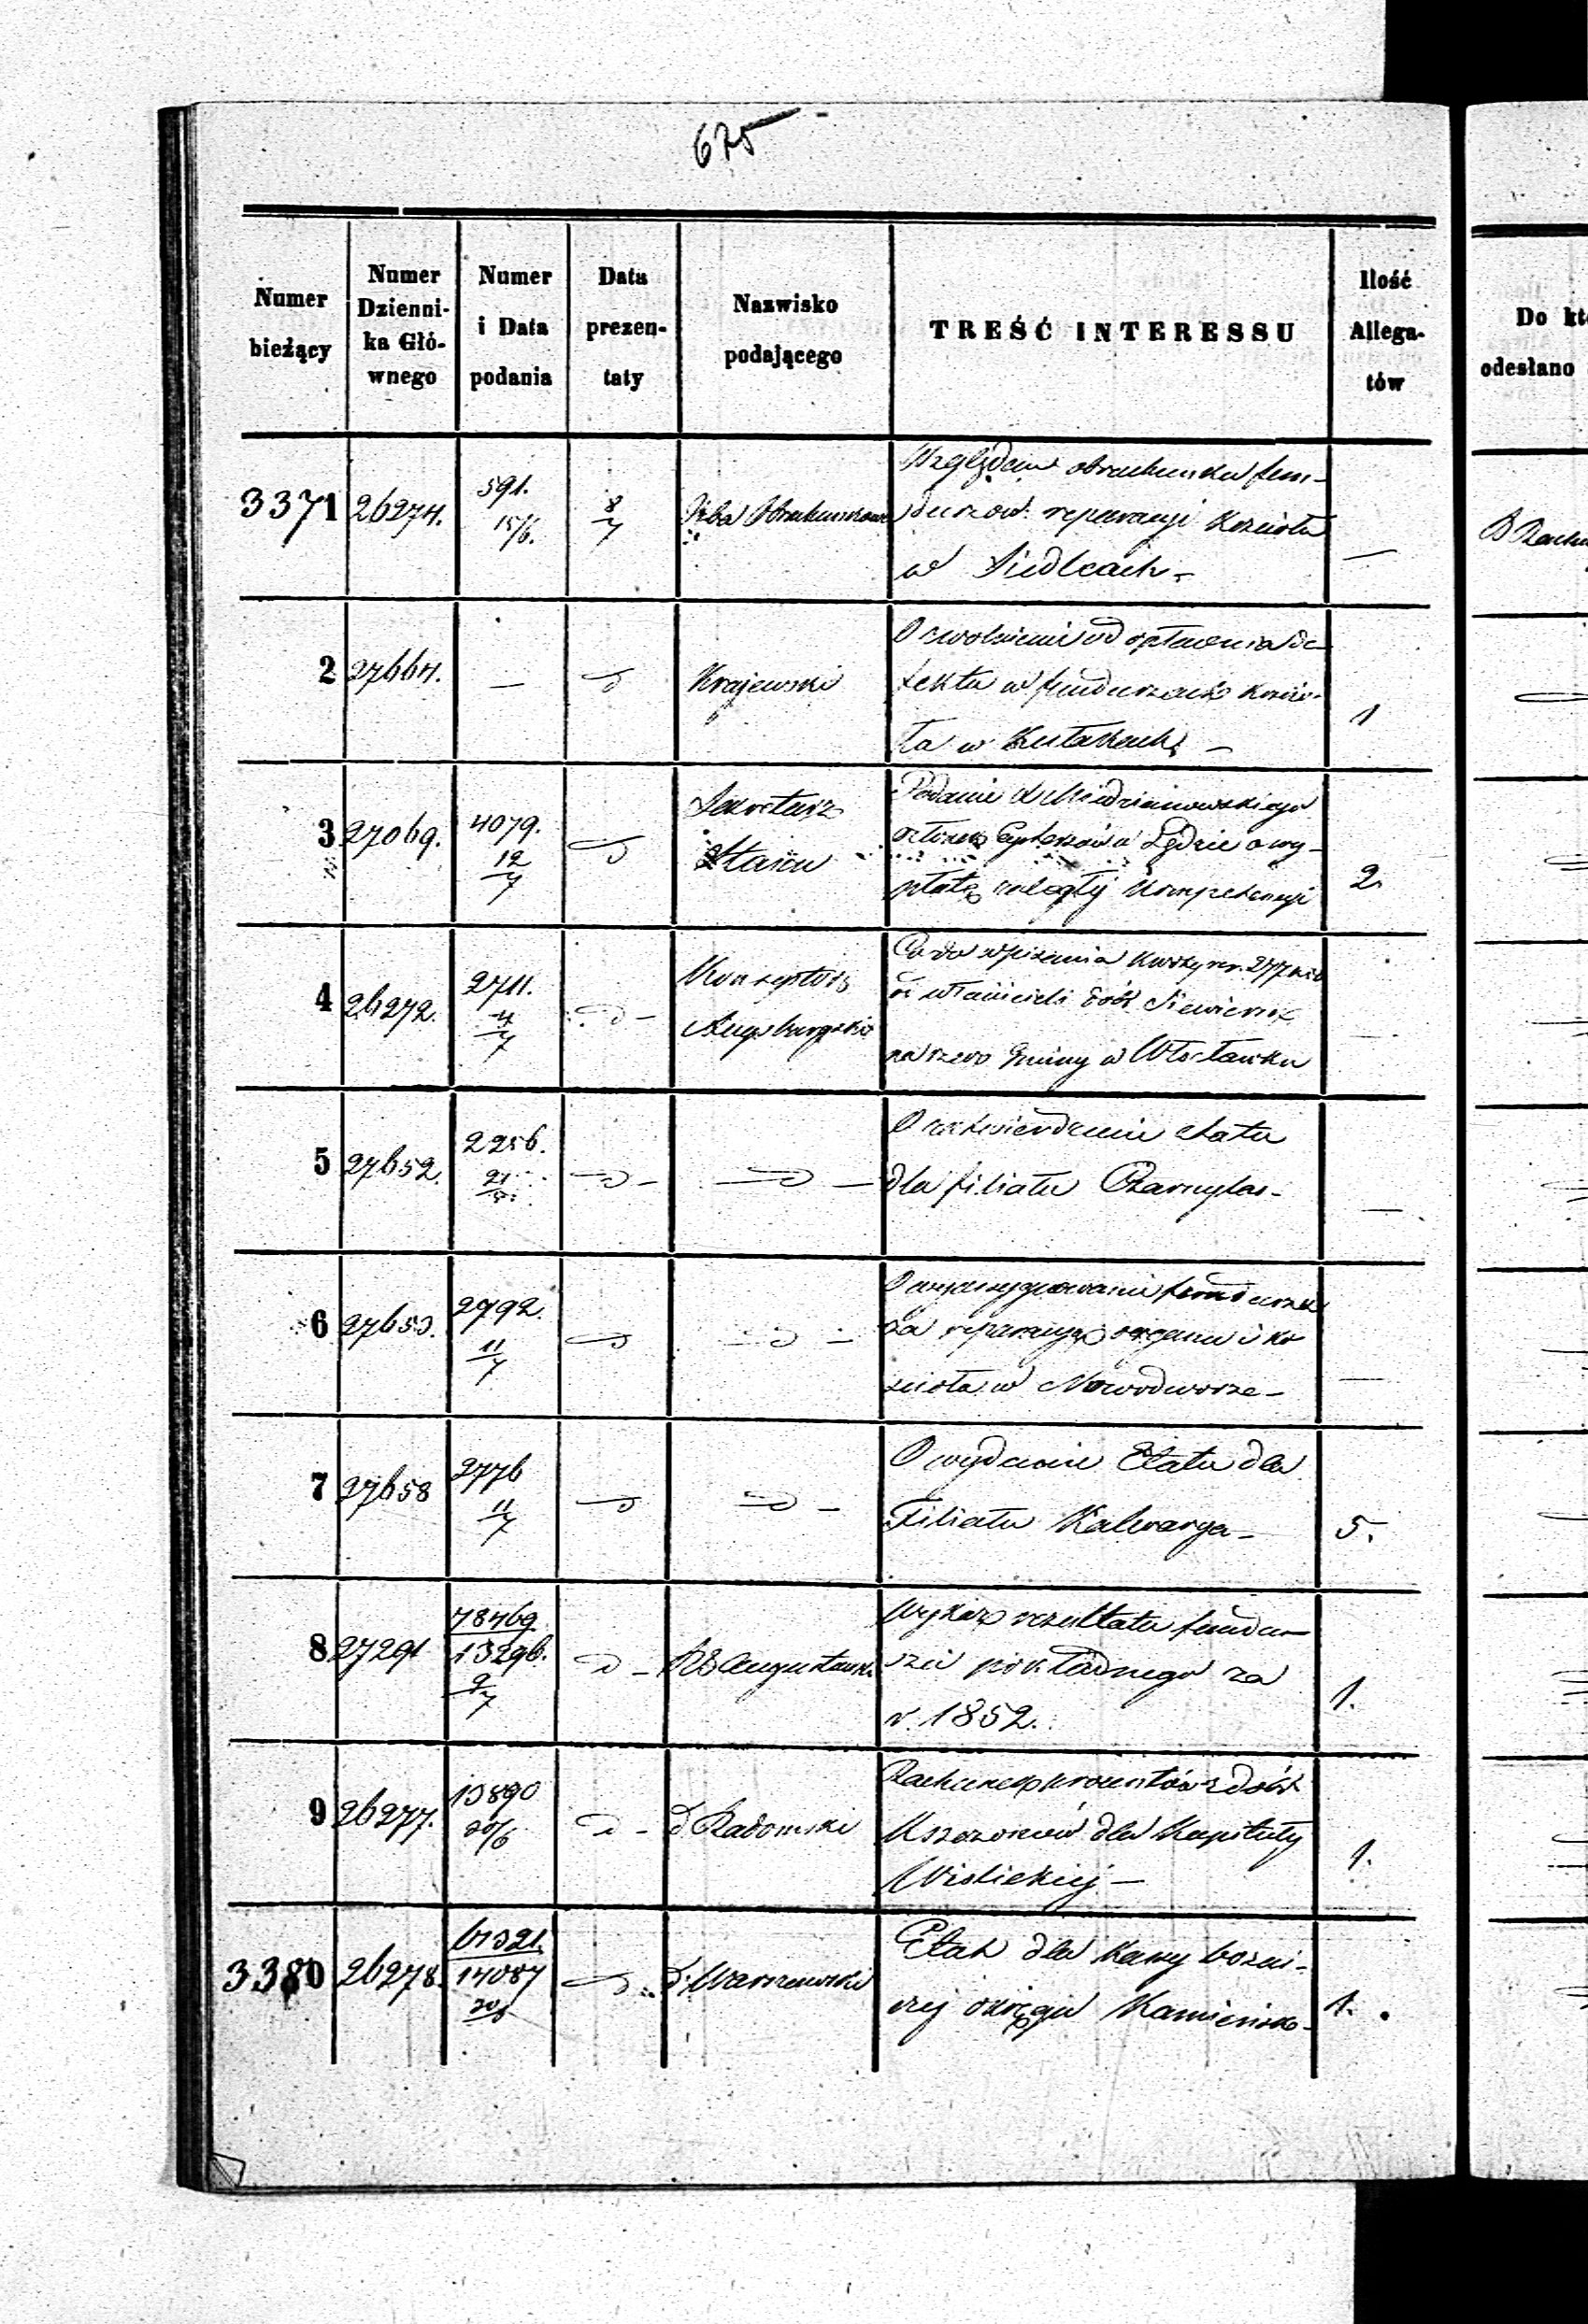 675
Numer bieżący
Numer Dzienni-
ka Głó-
wnego
Numer i Data podania
Data prezen-
taty
Nazwisko podającego
TREŚĆ INTERESSU
Ilość Allega-
tów
Do kt
odesłano
3371 26274. 591. 15/6. 8/7 Izba Obrachunkowa
Względem obrachunku fun-
duszow. reparacyi Kościoła
w Siedlcach -
—
B Rachu
2 27664. — d Krajewski
O uwolnienie od opłacenia de-
fektu w funduszach kościo-
ła w
1
3 27069. 4079. 12/7 d Sekretarz
Stanu
Podanie
o wy-
płatę zaległej kompetencyi
2
4 26272. 2711. 4/7 d - Konsystorz
Augsburgski
Co do wpisania 277
właścicieli dóbr
na rzecz Gminy w Włocławku
5 27652. 2256. d - d -
O zatwierdzenie etatu
dla filiału Czarnylas -
—
6 27653. 2792. 11/7 d d -
O funduszu
na reparacyą organu i ko
ścioła w Nowodworze -
—
7 27658 2776 11/7 d d -
O wydanie Etatu dla
Filiału Kalwarya -
5.
8 27291 78469
13296. 9/7 d - Augustowski
Wykaz rezultatu fundu-
szu pokładnego za
r. 1852.
1.
9 26277. 13890 20/6 d - d Radomski
Rachunek procentów z dóbr
dla Kapituły
Wislickiej -
1.
3380 26278. 61321
14087 d d Warszawski
Etat dla Kassy bożni-
czej okręgu Kamieńsk -
1.